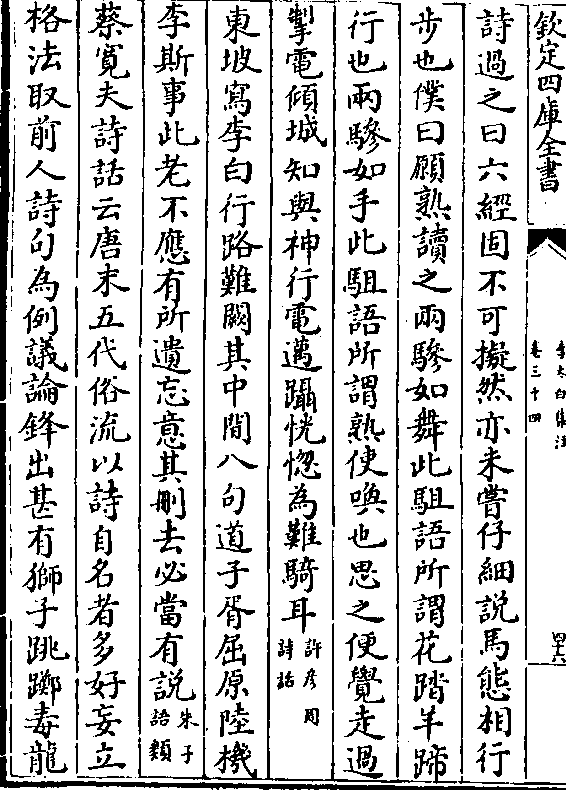 欽定四庫全書
李太白集注
卷三十四
四六
詩過之曰六經固不可擬然亦未嘗仔細説馬態相行
歩也僕曰願熟讀之兩驂如舞此駔語所謂花踏羊蹄
行也兩驂如手此駔語所謂熟使喚也思之便覺走過
掣電傾城知與神行電邁躡恍惚為難騎耳許彦周詩話
東坡寫李白行路難闕其中間八句道子胥屈原陸機
李斯事此老不應有所遺忘意其刪去必當有説朱子語類
蔡寛夫詩話云唐末五代俗流以詩自名者多好妄立
格法取前人詩句為例議論鋒出甚有獅子跳躑毒龍